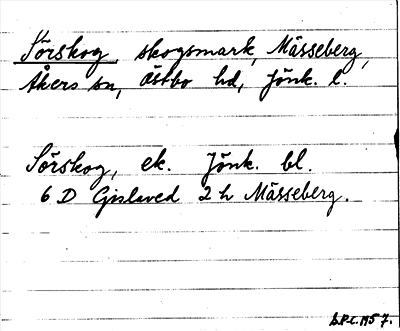 Sörskog, skogsmark, Mässeberg,
Åkers sn, Östbo hd, Jönk. l.
Sörskog, ek. Jönk. bl.
6 D Gislaved 2 h Mässeberg.
1957.